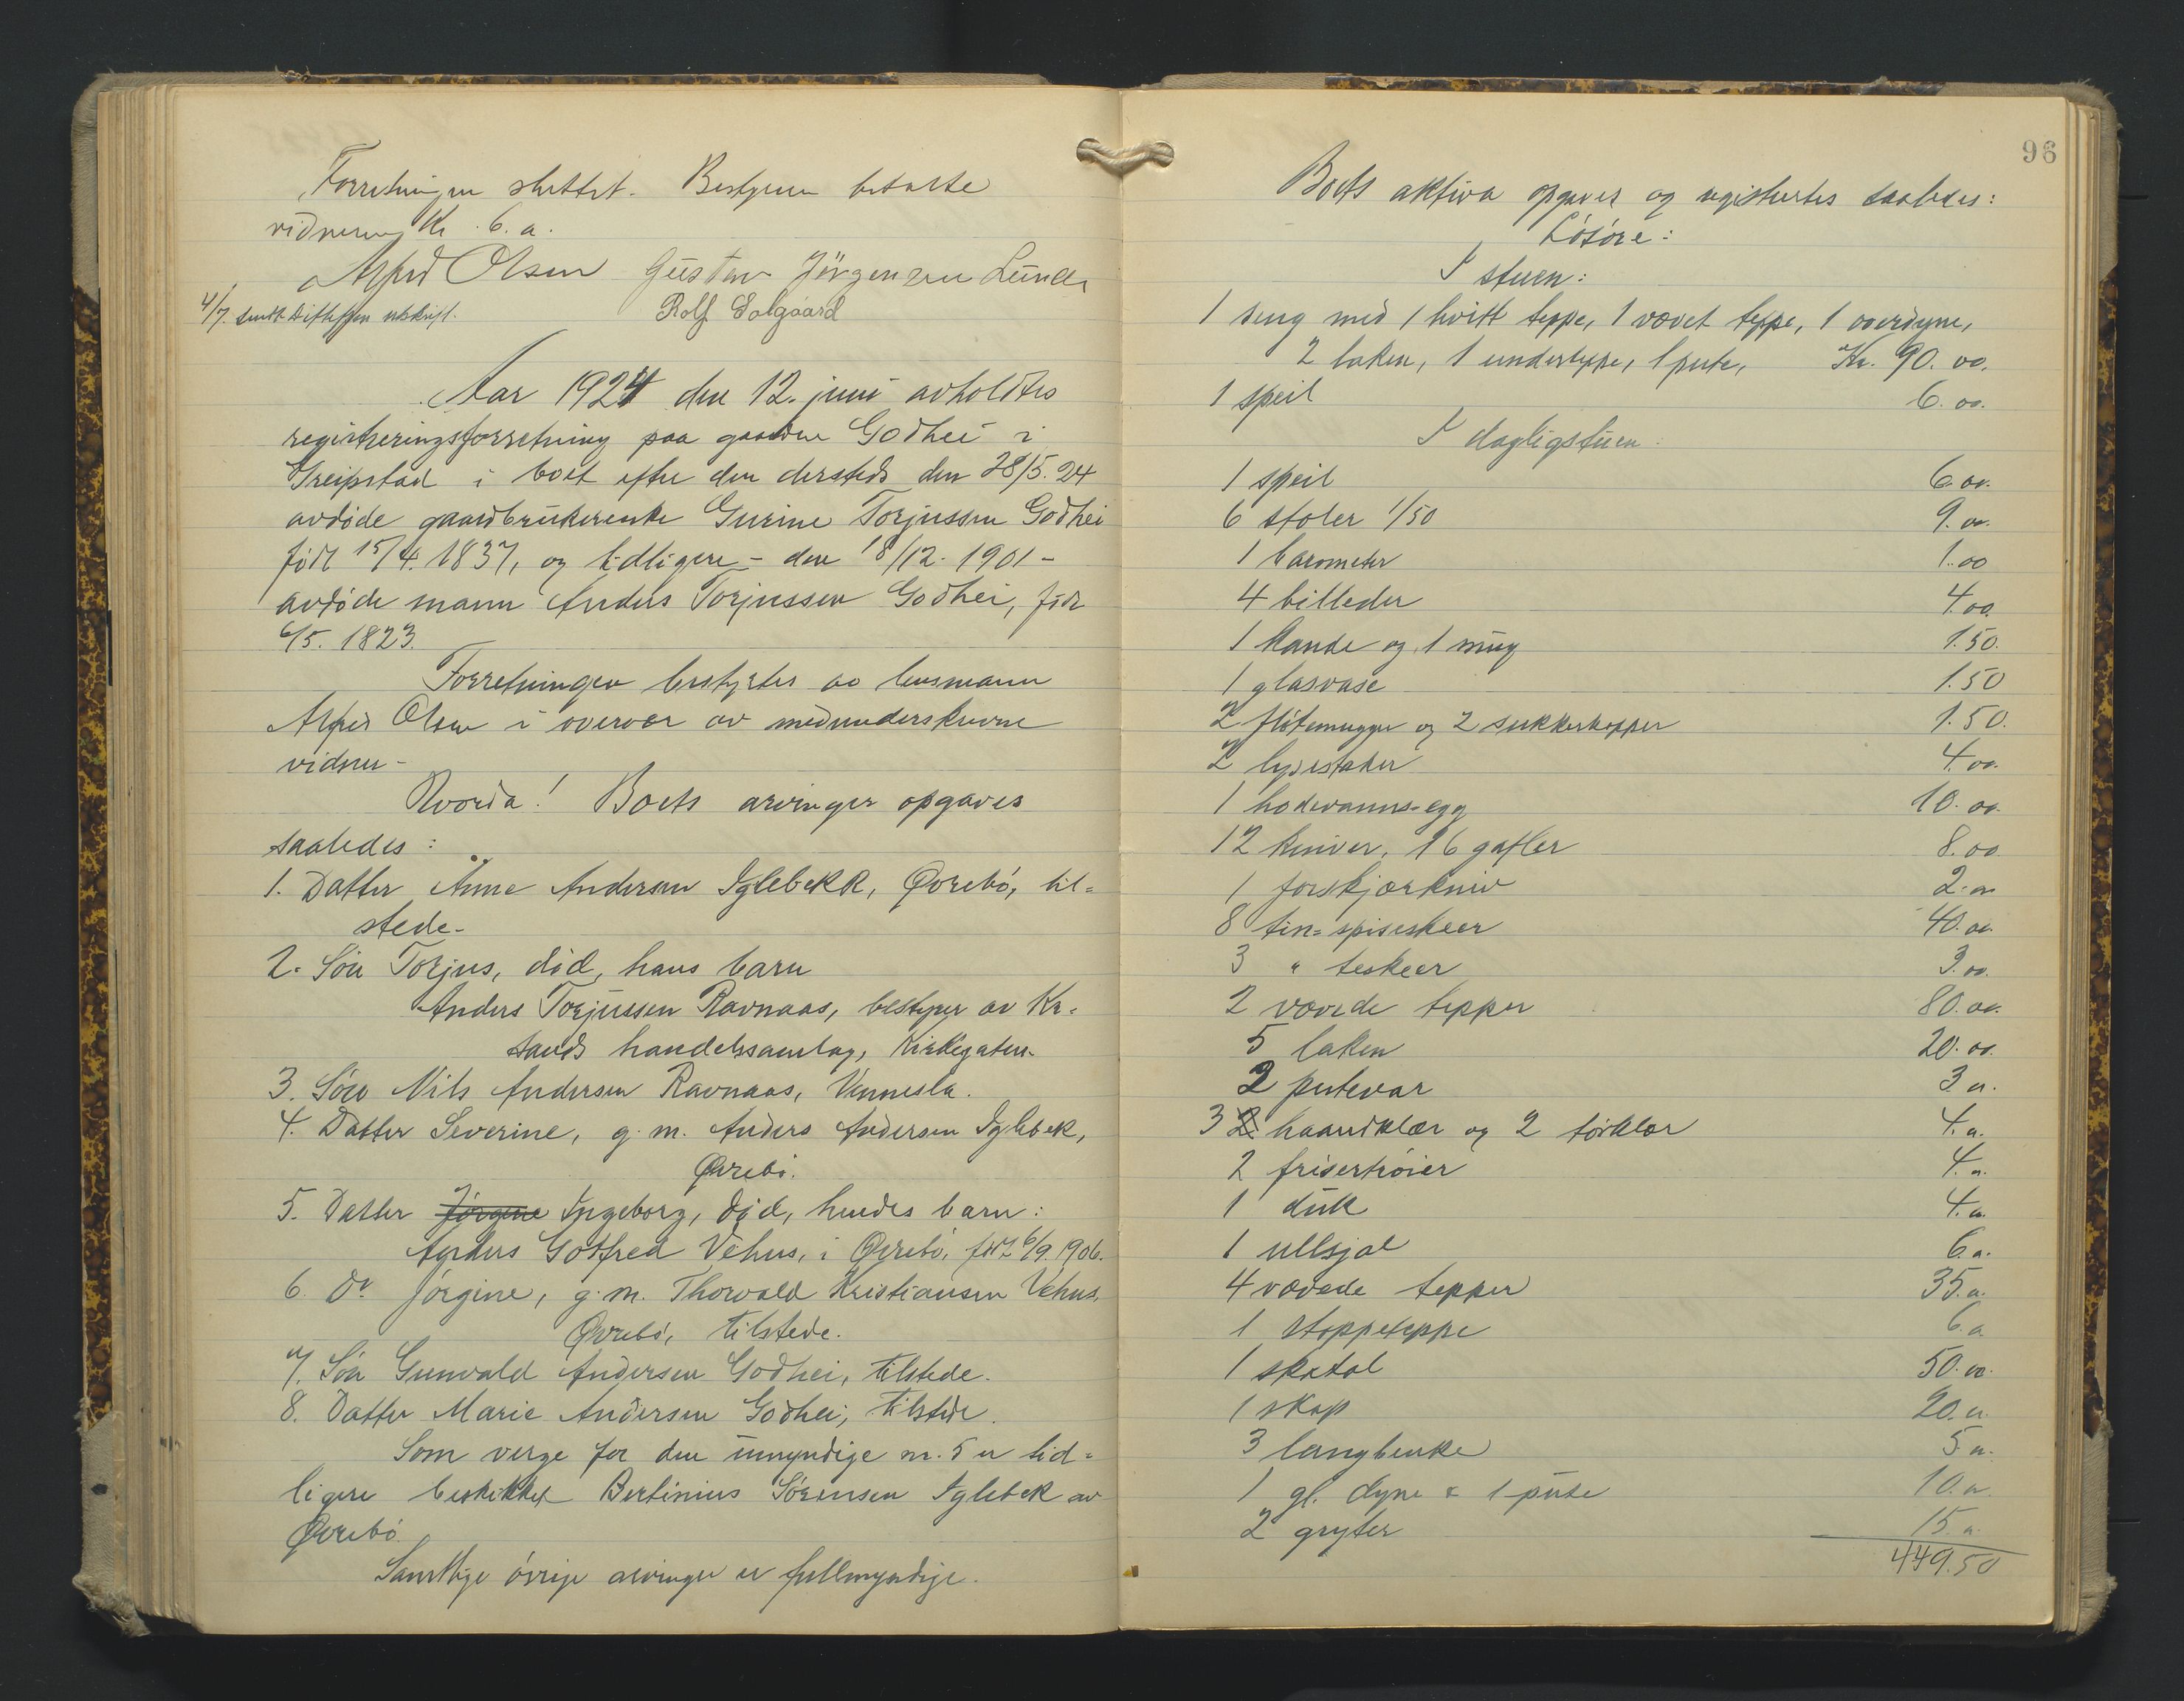 Forretningen sluttet. Bestyreren betalte
vidnerne Kr. 6.00.
Alfred Olsen Gustav Jörgensen Lunde
4/7. sendt utskrift. Rolf Dalgaard
Aar 1924 den 12. juni avholdtes
registreringsforretning paa gaarden Godhei i
Greipstad i boet efter den dersteds den 28/5.24
avdøde gaardbrukerenke Gurine Torjussen Godhei
født 15/4.1837, og tidligere - den 18/12.1901 -
avdøde mann Anders Torjussen Godhei, født
6/5. 1823.
Forretningen bestyrtes av lensmann
Alfred Olsen i overvær av medunderskrevne
vidner -
Hvorda! Boets arvinger opgaves
saaledes:
1. Datter Anne Andersen Iglebekk, Øvrebö, til=
stede.
2. Sön Torjus, död, hans barn
Anders Torjussen Ravnaas, bestyrer av Kr.
sands handelssamlag, Kirkegaten.
3. Sön Nils Andersen Ravnaas, Vennesla.
4. Datter Severine, g.m. Anders Andersen Iglebek,
Øvrebö.
5. Datter Jörgine Ingeborg, död, hendes barn:
Anders Gotfred Vehus, i Øvrebö, født 6/9.1906.
6. Do Jörgine, g.m. Thorvald Kristiansen Vehus,
Øvrebö, tilstede.
7. Sön Gunvald Andersen Godhei, tilstede.
8. Datter Marie Andersen Godhei, tilstede.
Som verge for den umyndige nr. 5 er tid=
ligere beskikket Bertinius Sørensen Iglebek av
Øvrebö.
Samtlige övrige arvinger er fullmyndige.
96
Boets aktiva opgaves og registrertes saaledes:
Lösöre:
I stuen:
1 seng med 1 hvitt teppe, 1 vævet teppe, 1 overdyne,
2 laken, 1 underteppe, 1 pute, Kr. 90.00.
1 speil 6.00.
I dagligstuen:
1 speil 6.00.
6 stoler 1/50 9.00.
1 barometer 1.00
4 billeder 4.00.
1 kande og 1 mug 1.50.
1 glasvase 1.50
2 flötemugger og 2 sukkerkopper 1.50.
2 lysestaker 4.00.
1 hodevanns-egg 10.00.
12 kniver, 16 gafler 8.00
1 forskjærkniv 2.00
8 tin=spiseskeer 40.00.
3 " teskeer 3.00.
2 vævede tepper 80.00.
5 laken 20.00.
2 putevar 3.00.
3 2 haandklær og 2 törklær 4.00.
2 frisertröier 4.00.
1 duk 4.00.
1 ullsjal 6.00.
4 vævede tepper 35.00.
1 stoppeteppe 6.00
1 skatol 50.00.
1 skap 20.00
3 langbenke 5.00.
1 gl. dyne & 1 pute 10.00
2 gryter 15.00.
449.50